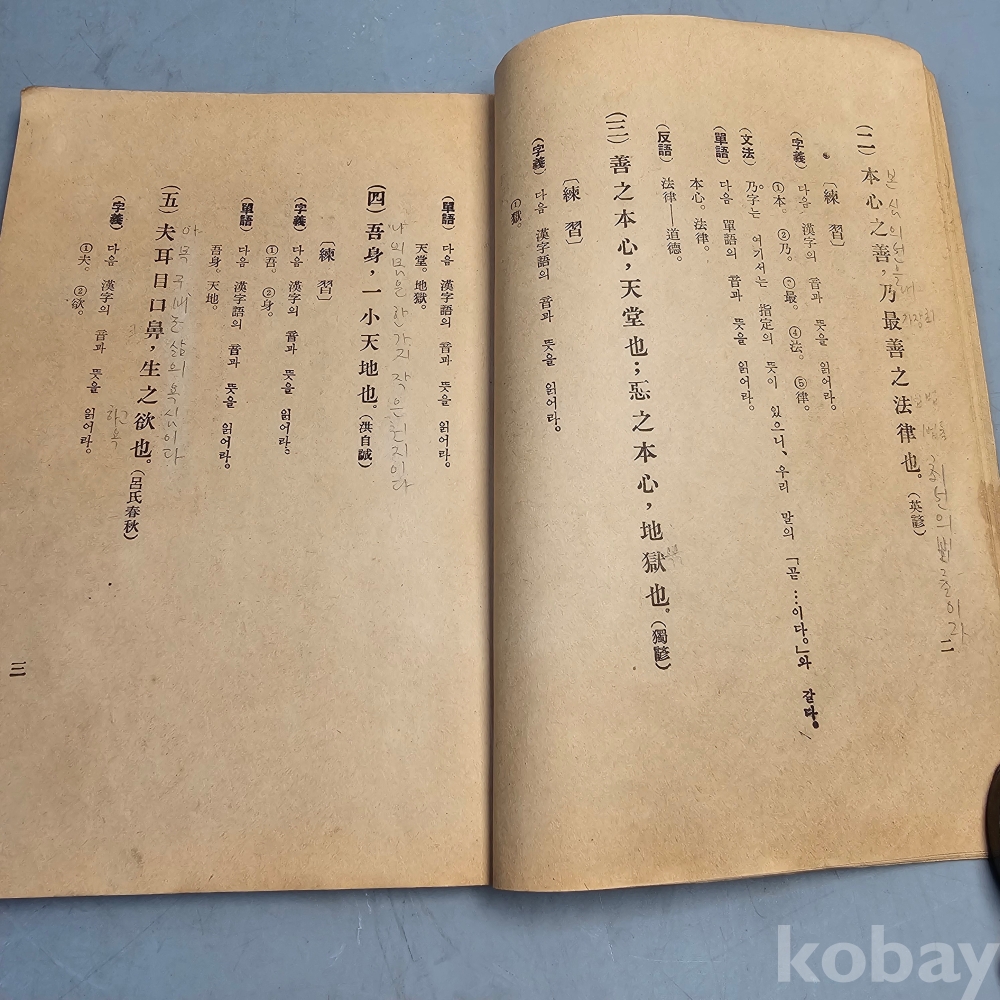 (二) 本心之善，乃最善之法律也。(英諺)
본심의선은내
최선의법률이라
〔練習〕
(字義) 다음 漢字의 音과 뜻을 읽어라。
①本。②乃。③最。④法。⑤律。
(文法) 乃字는 여기서는 指定의 뜻이 있으니、우리 말의 「곧…이다。」와 같다。
(單語) 다음 單語의 音과 뜻을 읽어라。
本心。法律。
(反語) 法律——道德。
(三) 善之本心，天堂也；惡之本心，地獄也。(獨諺)
〔練習〕
(字義) 다음 漢字語의 音과 뜻을 읽어라。
①獄。
二
(單語) 다음 漢字語의 音과 뜻을 읽어라。
天堂。地獄。
(四) 吾身，一小天地也。(洪自誠)
나의몸은한가지 작은천지이다
〔練習〕
(字義) 다음 漢字의 音과 뜻을 읽어라。
①吾。②身。
(單語) 다음 漢字語의 音과 뜻을 읽어라。
吾身。天地。
(五) 夫耳目口鼻，生之欲也。(呂氏春秋)
삶의 욕심이다
(字義) 다음 漢字의 音과 뜻을 읽어라。
①夫。②欲。
三
kobay